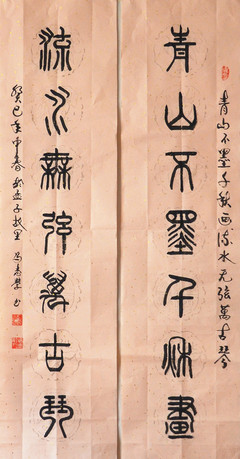 青山不墨千秋画流水无弦万古琴
青山不墨千秌畫
流水無弦萬古琴
癸巳年中春於孟子故里